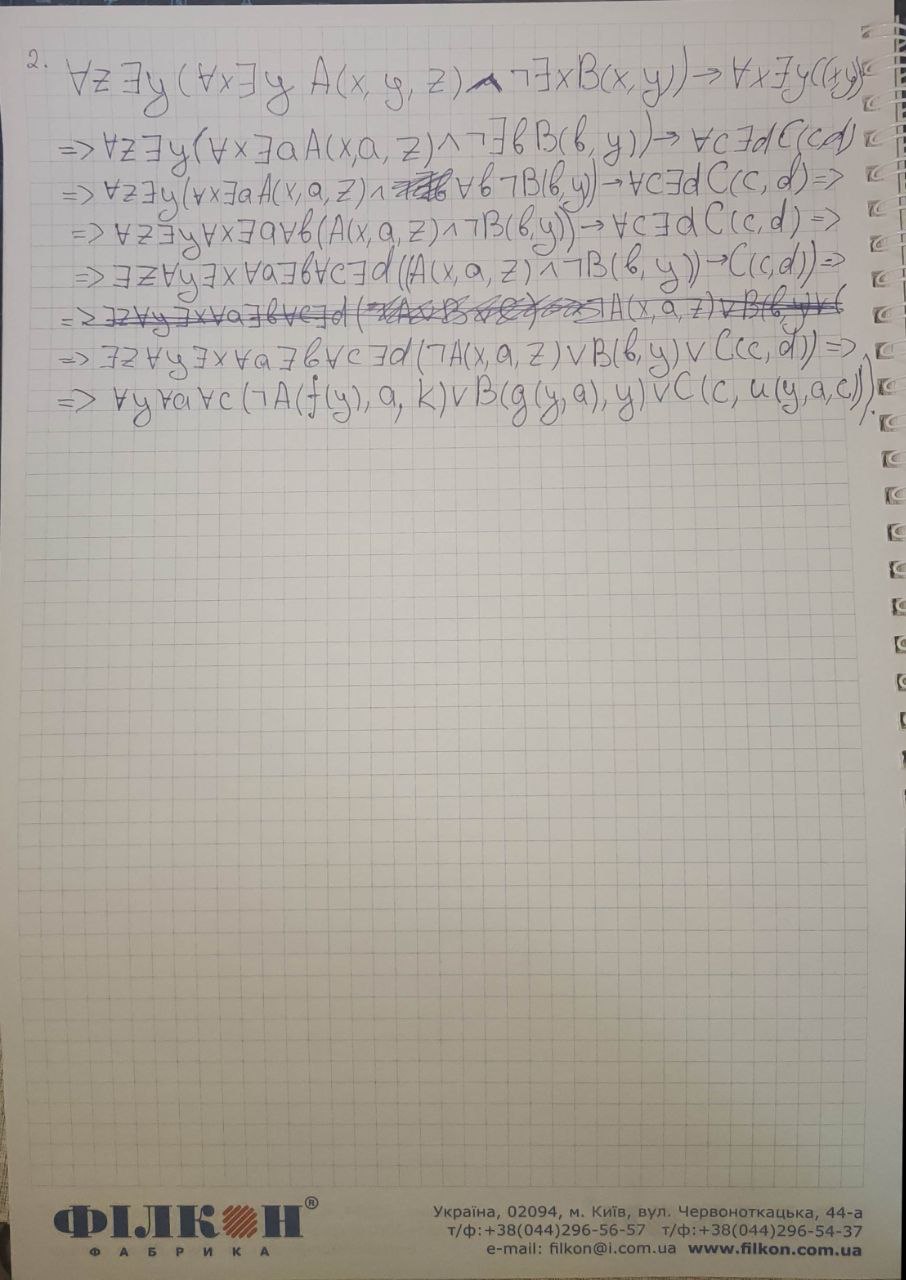 2. ∀z∃y(∀x∃y A(x, y, z)∧¬∃xB(x, y))→∀x∃y((x,y)
=> ∀z∃y(∀x∃aA(x,a, z)∧¬∃вB(в, y))→∀c∃dC(cd)
=> ∀z∃y(∀x∃aA(x,a,z)∧∀в¬B(в,y))→∀c∃dC(c,d)=>
=> ∀z∃y∀x∃a∀в(A(x,a,z)∧¬B(в,y))→∀c∃dC(c,d)=>
=> ∃z∀y∃x∀a∃в∀c∃d((A(x,a,z)∧¬B(в,y))→C(c,d))=>
=> ∃z∀y∃x∀a∃в∀c∃d( A(x,a,z)∨B(в,y)∨(
=> ∃z∀y∃x∀a∃в∀c∃d(¬A(x,a,z)∨B(в,y)∨C(c,d))=>
=> ∀y∀a∀c(¬A(f(y),a,k)∨B(g(y,a),y)∨C(c,u(y,a,c))).
ФІЛКОН®
ФАБРИКА
Україна, 02094, м. Київ, вул. Червоноткацька, 44-а
т/ф:+38(044)296-56-57 т/ф:+38(044)296-54-37
e-mail: filkon@i.com.ua www.filkon.com.ua